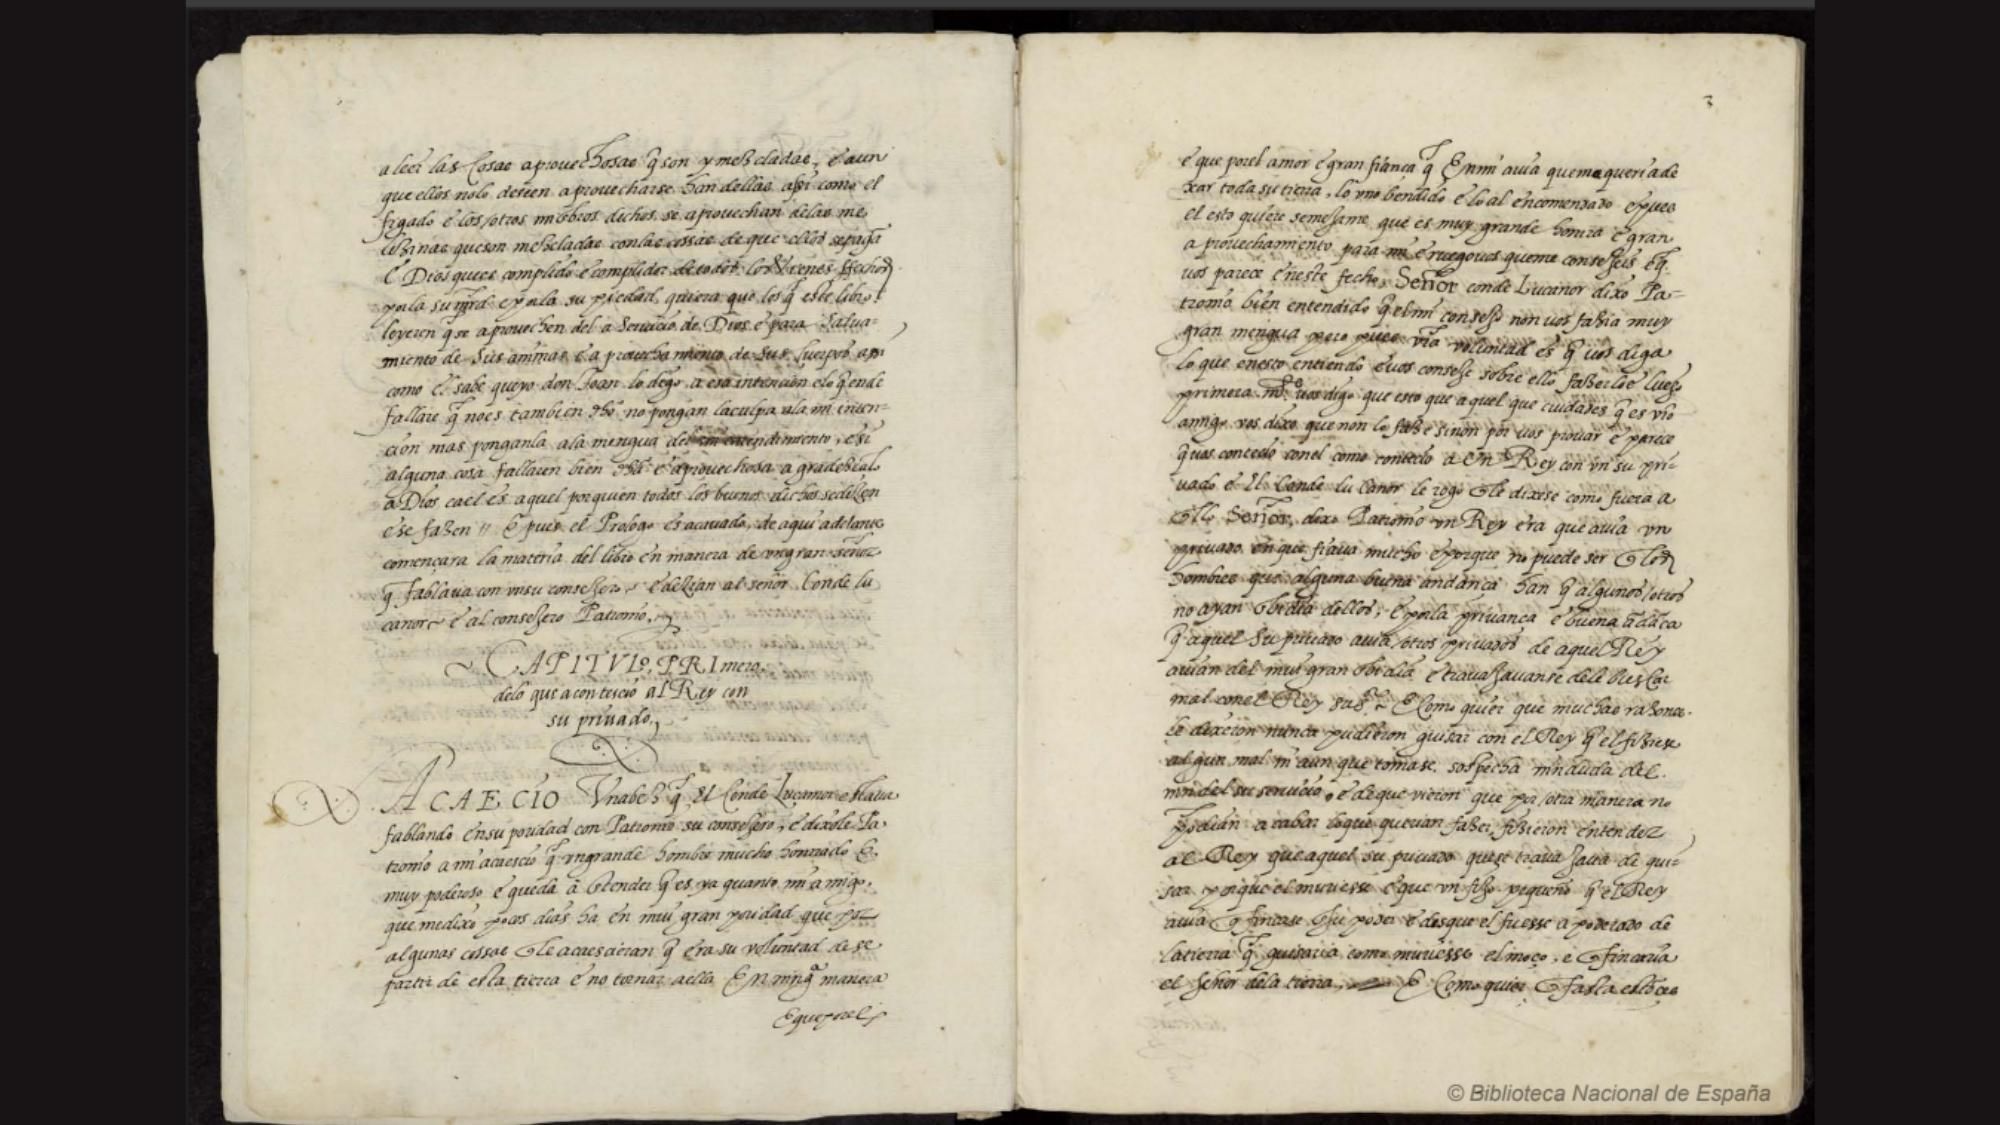 a leer las cosas aprouechosas q̃ son y mezcladas, e aun
que ellos no lo deseen aprouecharse han dellas assi como el
figado e los otros miẽbros dichos se aprouechan delas me
lezinas que son mezcladas con las cossas de que ellos se pagã
E Dios que es complido e complidor de todos los bienes fechos
por la su mrd̃ e por la su piedad quiera que los q̃ este libro
leyeren q̃ se aprouechen del a seruicio de Dios e para salua-
miento de sus animas e aprouechamiento de sus cuerpos asi
como el sabe que yo don Joan lo digo a essa intencion e lo q̃ ende
fallare q̃ no es tambien dho no pongan la culpa a la mi inten-
cion mas ponganla ala mengua del mi entendimiento, e si
alguna cosa fallaren bien dha e aprouechosa agradezcalo
a Dios ca el es aquel por quien todos los buenos dichos se dizen
e se fazen // E pues el Prologo es acauado, de aqui adelante
començara la materia del libro en manera de vn gran señor
q̃ fablaua con vn su consejero, e dezian al señor Conde lu
canor e al consejero Patronio,
CAPITVLº, PRImero,
delo que acontescio al Rey con
su priuado,
ACAECIO Vna bez q̃ El Conde Lucanor estaua
fablando en su poridad con Patronio su consejero, e dixole Pa-
tronio a mi acaescio q̃ vn grande hombre mucho honrrado E
muy poderoso e que da a Entender q̃ es ya quanto mi amigo,
que me dixo pocos dias ha en muy gran poridad que por
algunas cossas q̃ le acaescieran q̃ era su voluntad de se
partir de esta tierra e no tornar a ella En ningª manera
E que por el
3
e que por el amor e gran fiança q̃ En mi auia que me queria de
xar toda su tierra, lo vno bendido e lo al encomendado e pues
el esto quiere semejame que es muy grande honrra e gran
aprouechamiento para mi e ruegouos que me consejeis lo q̃
uos parece en este fecho, Señor conde Lucanor dixo Pa-
tronio bien entendido q̃ el mi consejo non uos fazia muy
gran mengua pero pues vr̃a voluntad es q̃ uos diga
lo que en esto entiendo e uos conseje sobre ello fazerloe luego
primera mẽ uos digo que esto que aquel que cuidades q̃ es vr̃o
amigo vos dixo que non lo faze sinon por uos prouar e parece
q̃ uos contecio con el como contecio a Vn Rey con vn su pri-
uado e El Conde lucanor le rogo q̃ le dixese como fuera a
q̃llo Señor, dixo Patronio vn Rey era que auia vn
priuado en que fiaua mucho e porque no puede ser q̃ los
hombres que alguna buena andança han q̃ algunos otros
no ayan Enbidia dellos, e por la priuança e buena ãdãça
q̃ aquel su priuado auia otros priuados de aquel Rey
auian del muy gran Enbidia e trauajauanse dele buscar
mal con el Rey su sr̃ E Como quier que muchas razones
le dixeron nunca pudieron guisar con el Rey q̃ el fiziese
algun mal ni aun que tomase sospecha nin duda del
nin del su seruicio, e de que vieron que por otra manera no
podian acabar lo que querian fazer, fizieron entender
al Rey que aquel su priuado que se trauajaua de gui-
sar porque el muriesse e que vn fijo pequeño q̃ el Rey
auia q̃ fincase En su poder e desque el fuesse apoderado de
la tierra q̃ guisaria como muriesse el moço, e q̃ fincaria
el señor dela tierra, E Como quier q̃ fasta estõces
© Biblioteca Nacional de España